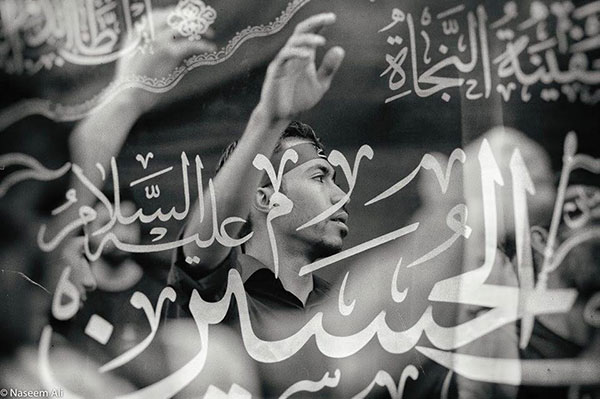 سفينة النجاة
الحسين
عليه السلام
© Naseem Ali